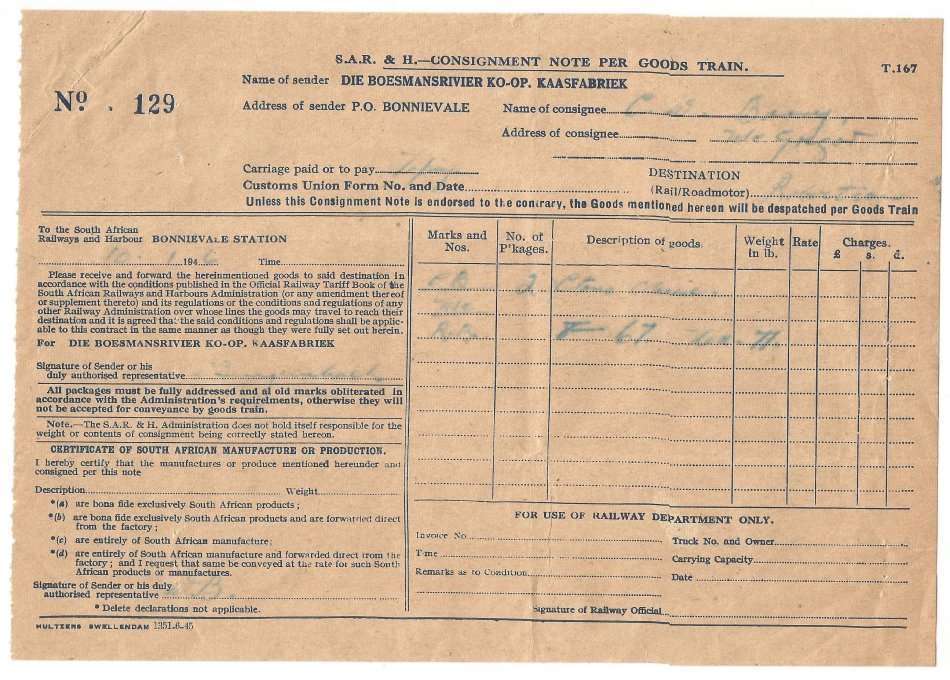 S.A.R. & H.—CONSIGNMENT NOTE PER GOODS TRAIN.
T.167
Name of sender DIE BOESMANSRIVIER KO-OP. KAASFABRIEK
No. 129
Address of sender P.O. BONNIEVALE
Name of consignee
Address of consignee
Carriage paid or to pay
DESTINATION
Customs Union Form No. and Date
(Rail/Roadmotor)
Unless this Consignment Note is endorsed to the contrary, the Goods mentioned hereon will be despatched per Goods Train
To the South African
Railways and Harbour BONNIEVALE STATION
194 Time
Please receive and forward the hereinmentioned goods to said destination in
accordance with the conditions published in the Official Railway Tariff Book of the
South African Railways and Harbours Administration (or any amendment thereof
or supplement thereto) and its regulations or the conditions and regulations of any
other Railway Administration over whose lines the goods may travel to reach their
destination and it is agreed that the said conditions and regulations shall be applic-
able to this contract in the same manner as though they were fully set out herein.
For DIE BOESMANSRIVIER KO-OP. KAASFABRIEK
Signature of Sender or his
duly authorised representative
All packages must be fully addressed and al old marks obliterated in
accordance with the Administration's requirelments, otherwise they will
not be accepted for conveyance by goods train.
Note.—The S.A.R. & H. Administration does not hold itself responsible for the
weight or contents of consignment being correctly stated hereon.
CERTIFICATE OF SOUTH AFRICAN MANUFACTURE OR PRODUCTION.
I hereby certify that the manufactures or produce mentioned hereunder and
consigned per this note
Description Weight
*(a) are bona fide exclusively South African products;
*(b) are bona fide exclusively South African products and are forwarded direct
from the factory;
*(c) are entirely of South African manufacture;
*(d) are entirely of South African manufacture and forwarded direct from the
factory; and I request that same be conveyed at the rate for such South
African products or manufactures.
Signature of Sender or his duly
authorised representative
* Delete declarations not applicable.
HULTZERS SWELLENDAM 1351.6-45
Marks and Nos.
No. of P'kages.
Description of goods.
Weight in lb.
Rate
Charges.
£ s. d.
2
67
FOR USE OF RAILWAY DEPARTMENT ONLY.
Invoice No.
Truck No. and Owner
Time
Carrying Capacity
Remarks as to Condition
Date
Signature of Railway Official